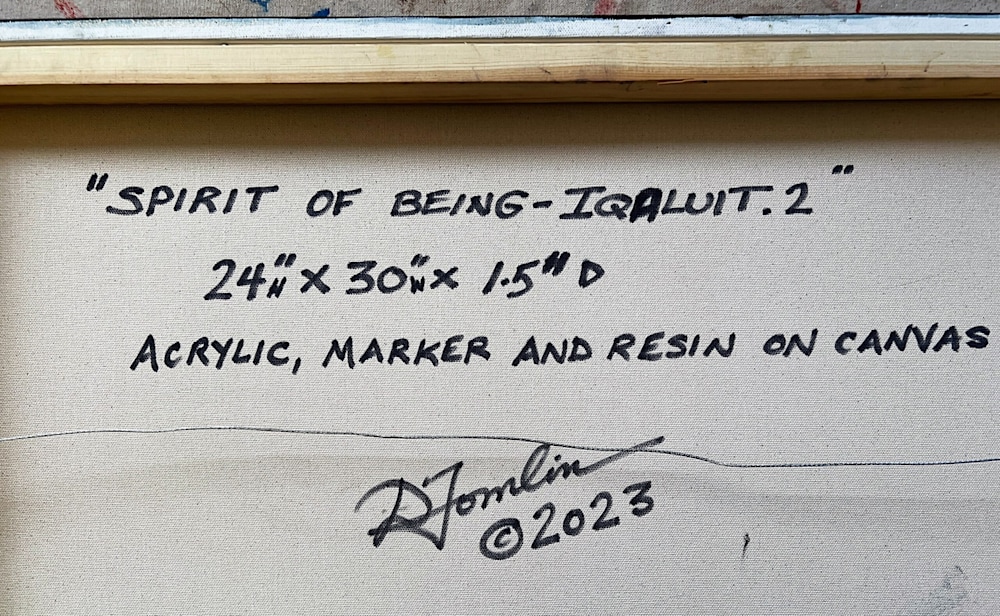 "SPIRIT OF BEING-IQALUIT.2"
24"H X 30"W X 1.5" D
ACRYLIC, MARKER AND RESIN ON CANVAS
DTomlin
©2023